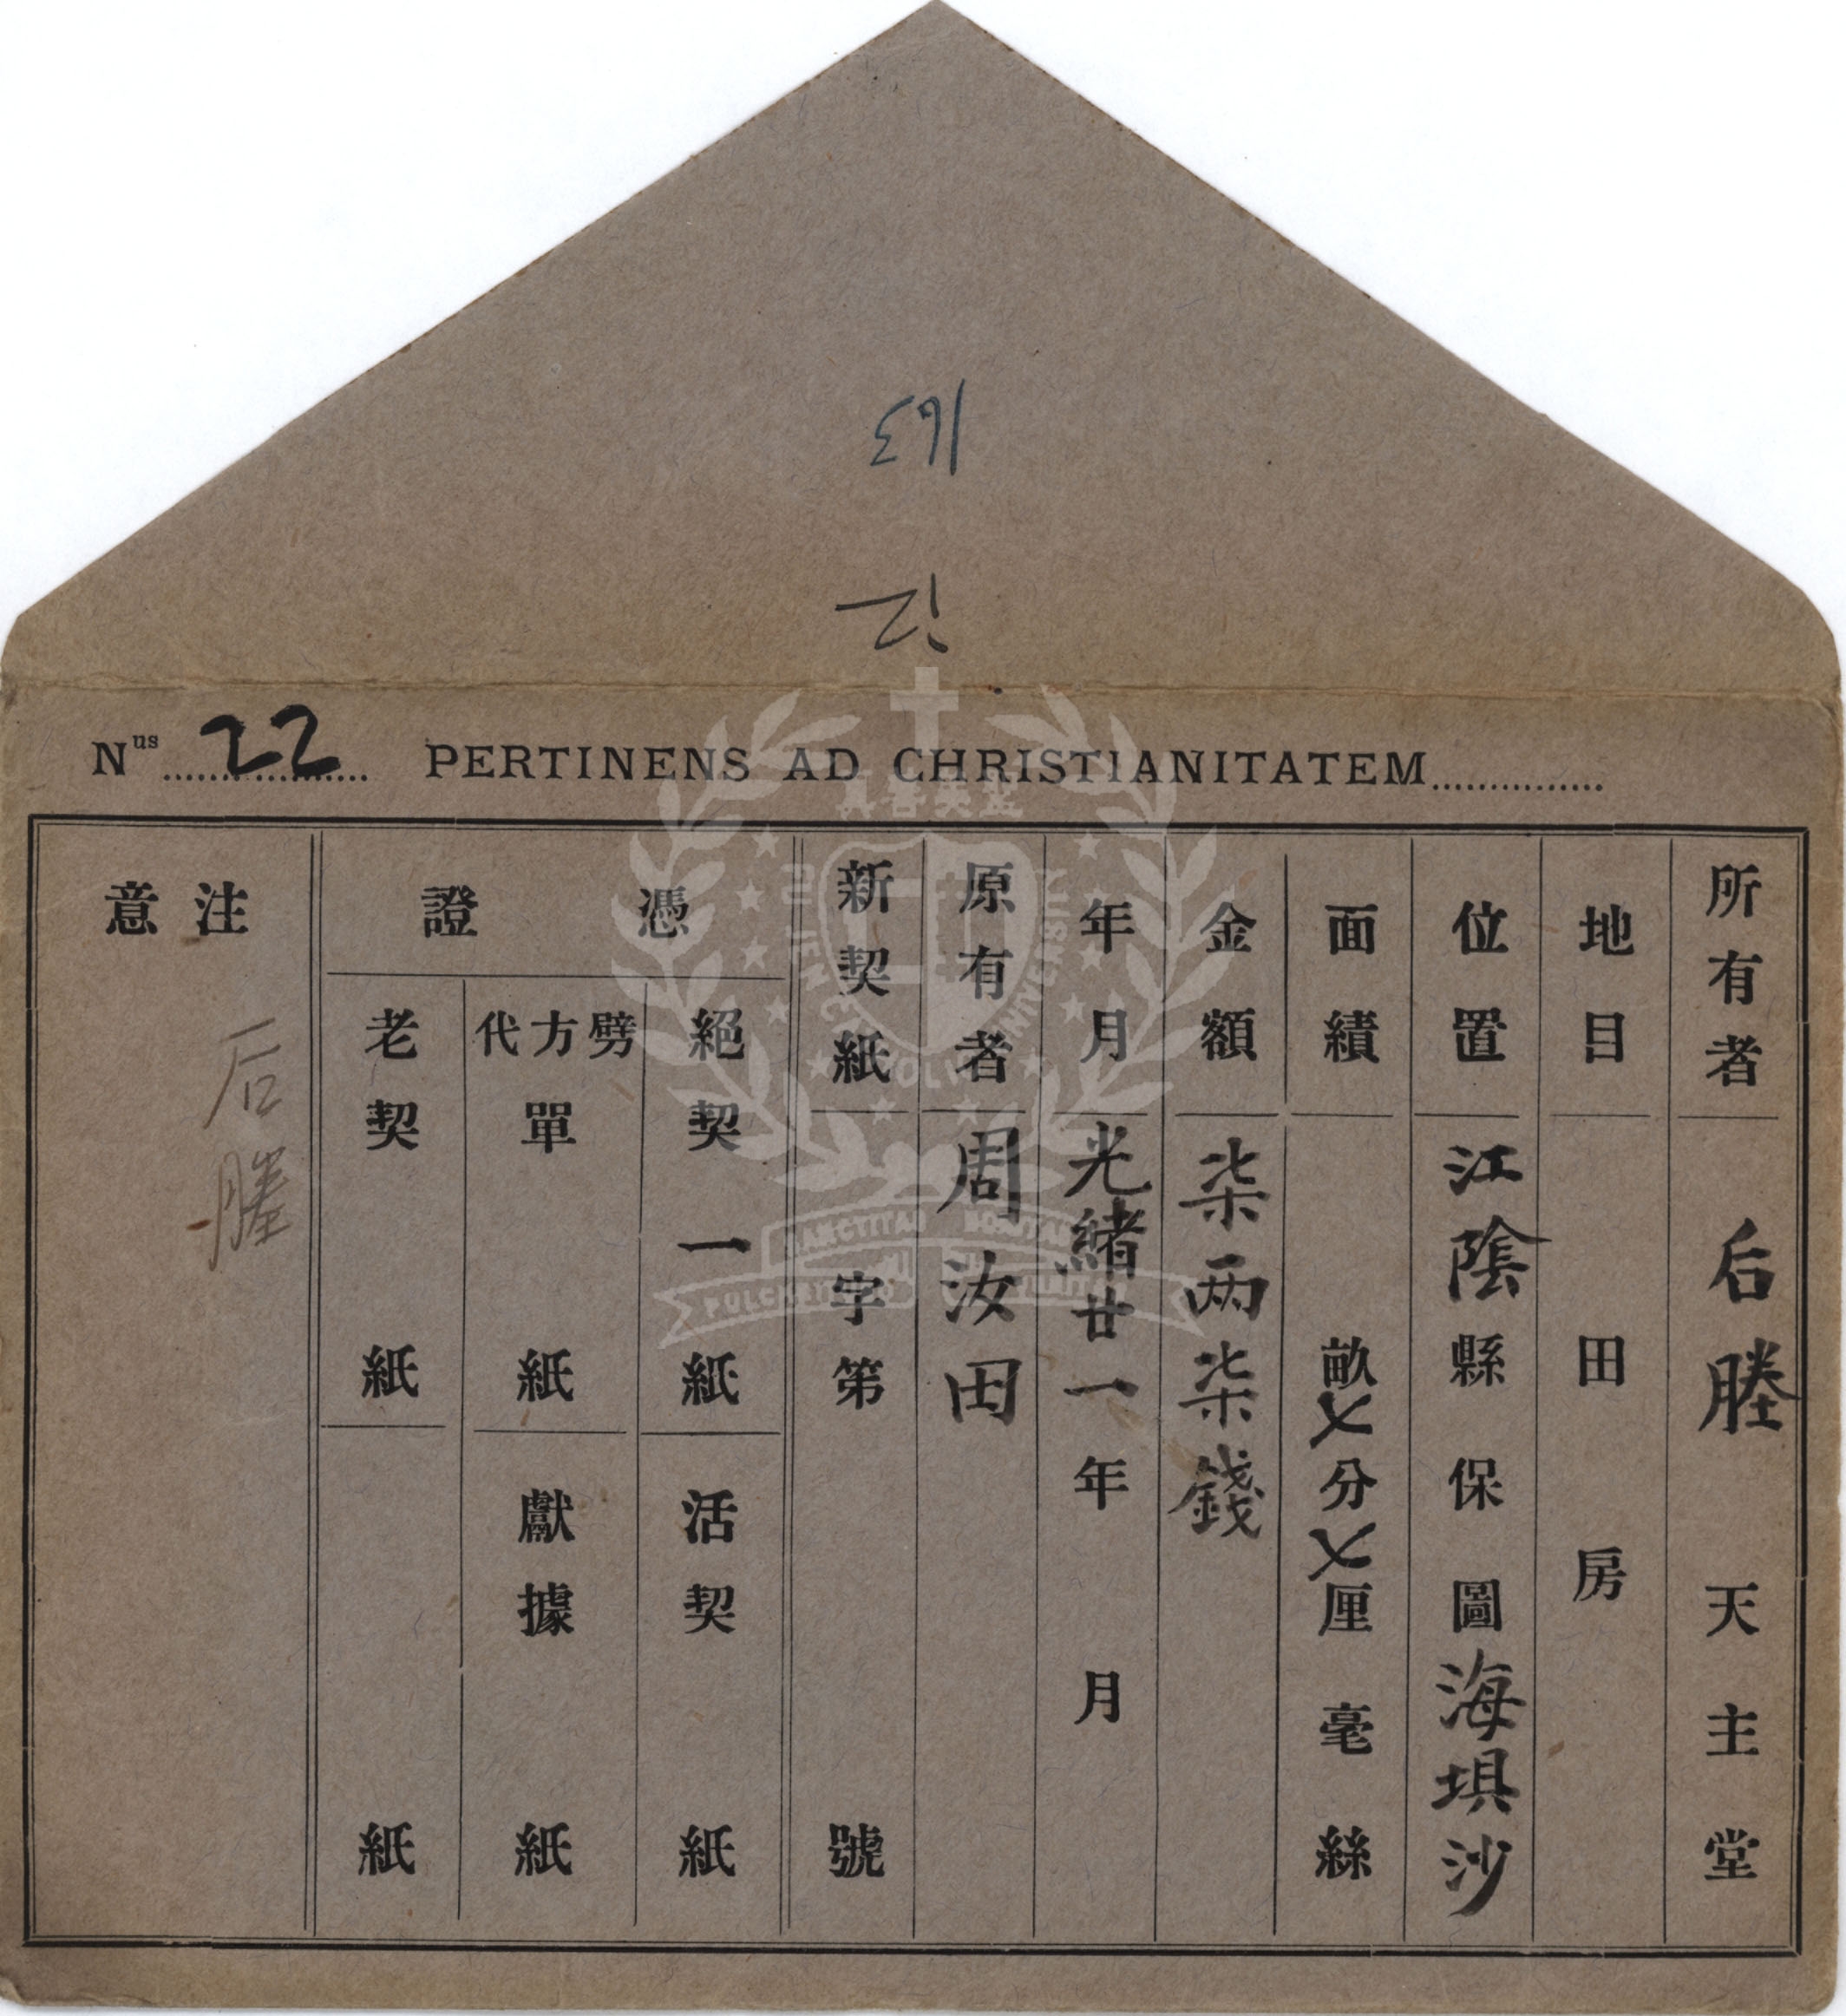 163
12
Nus 22 PERTINENS AD CHRISTIANITATEM
所有者 后塍 天主堂
地目 田 房
位置 江陰縣 保 圖 海埧沙
面績 畝〤分〤厘 毫 絲
金額 柒兩柒錢
年月 光緒廿一年 月
原有者 周汝田
新契紙 字第 號
憑證
絕契 一紙 活契 紙
劈方代單 紙 獻據 紙
老契 紙 紙
注意
后塍